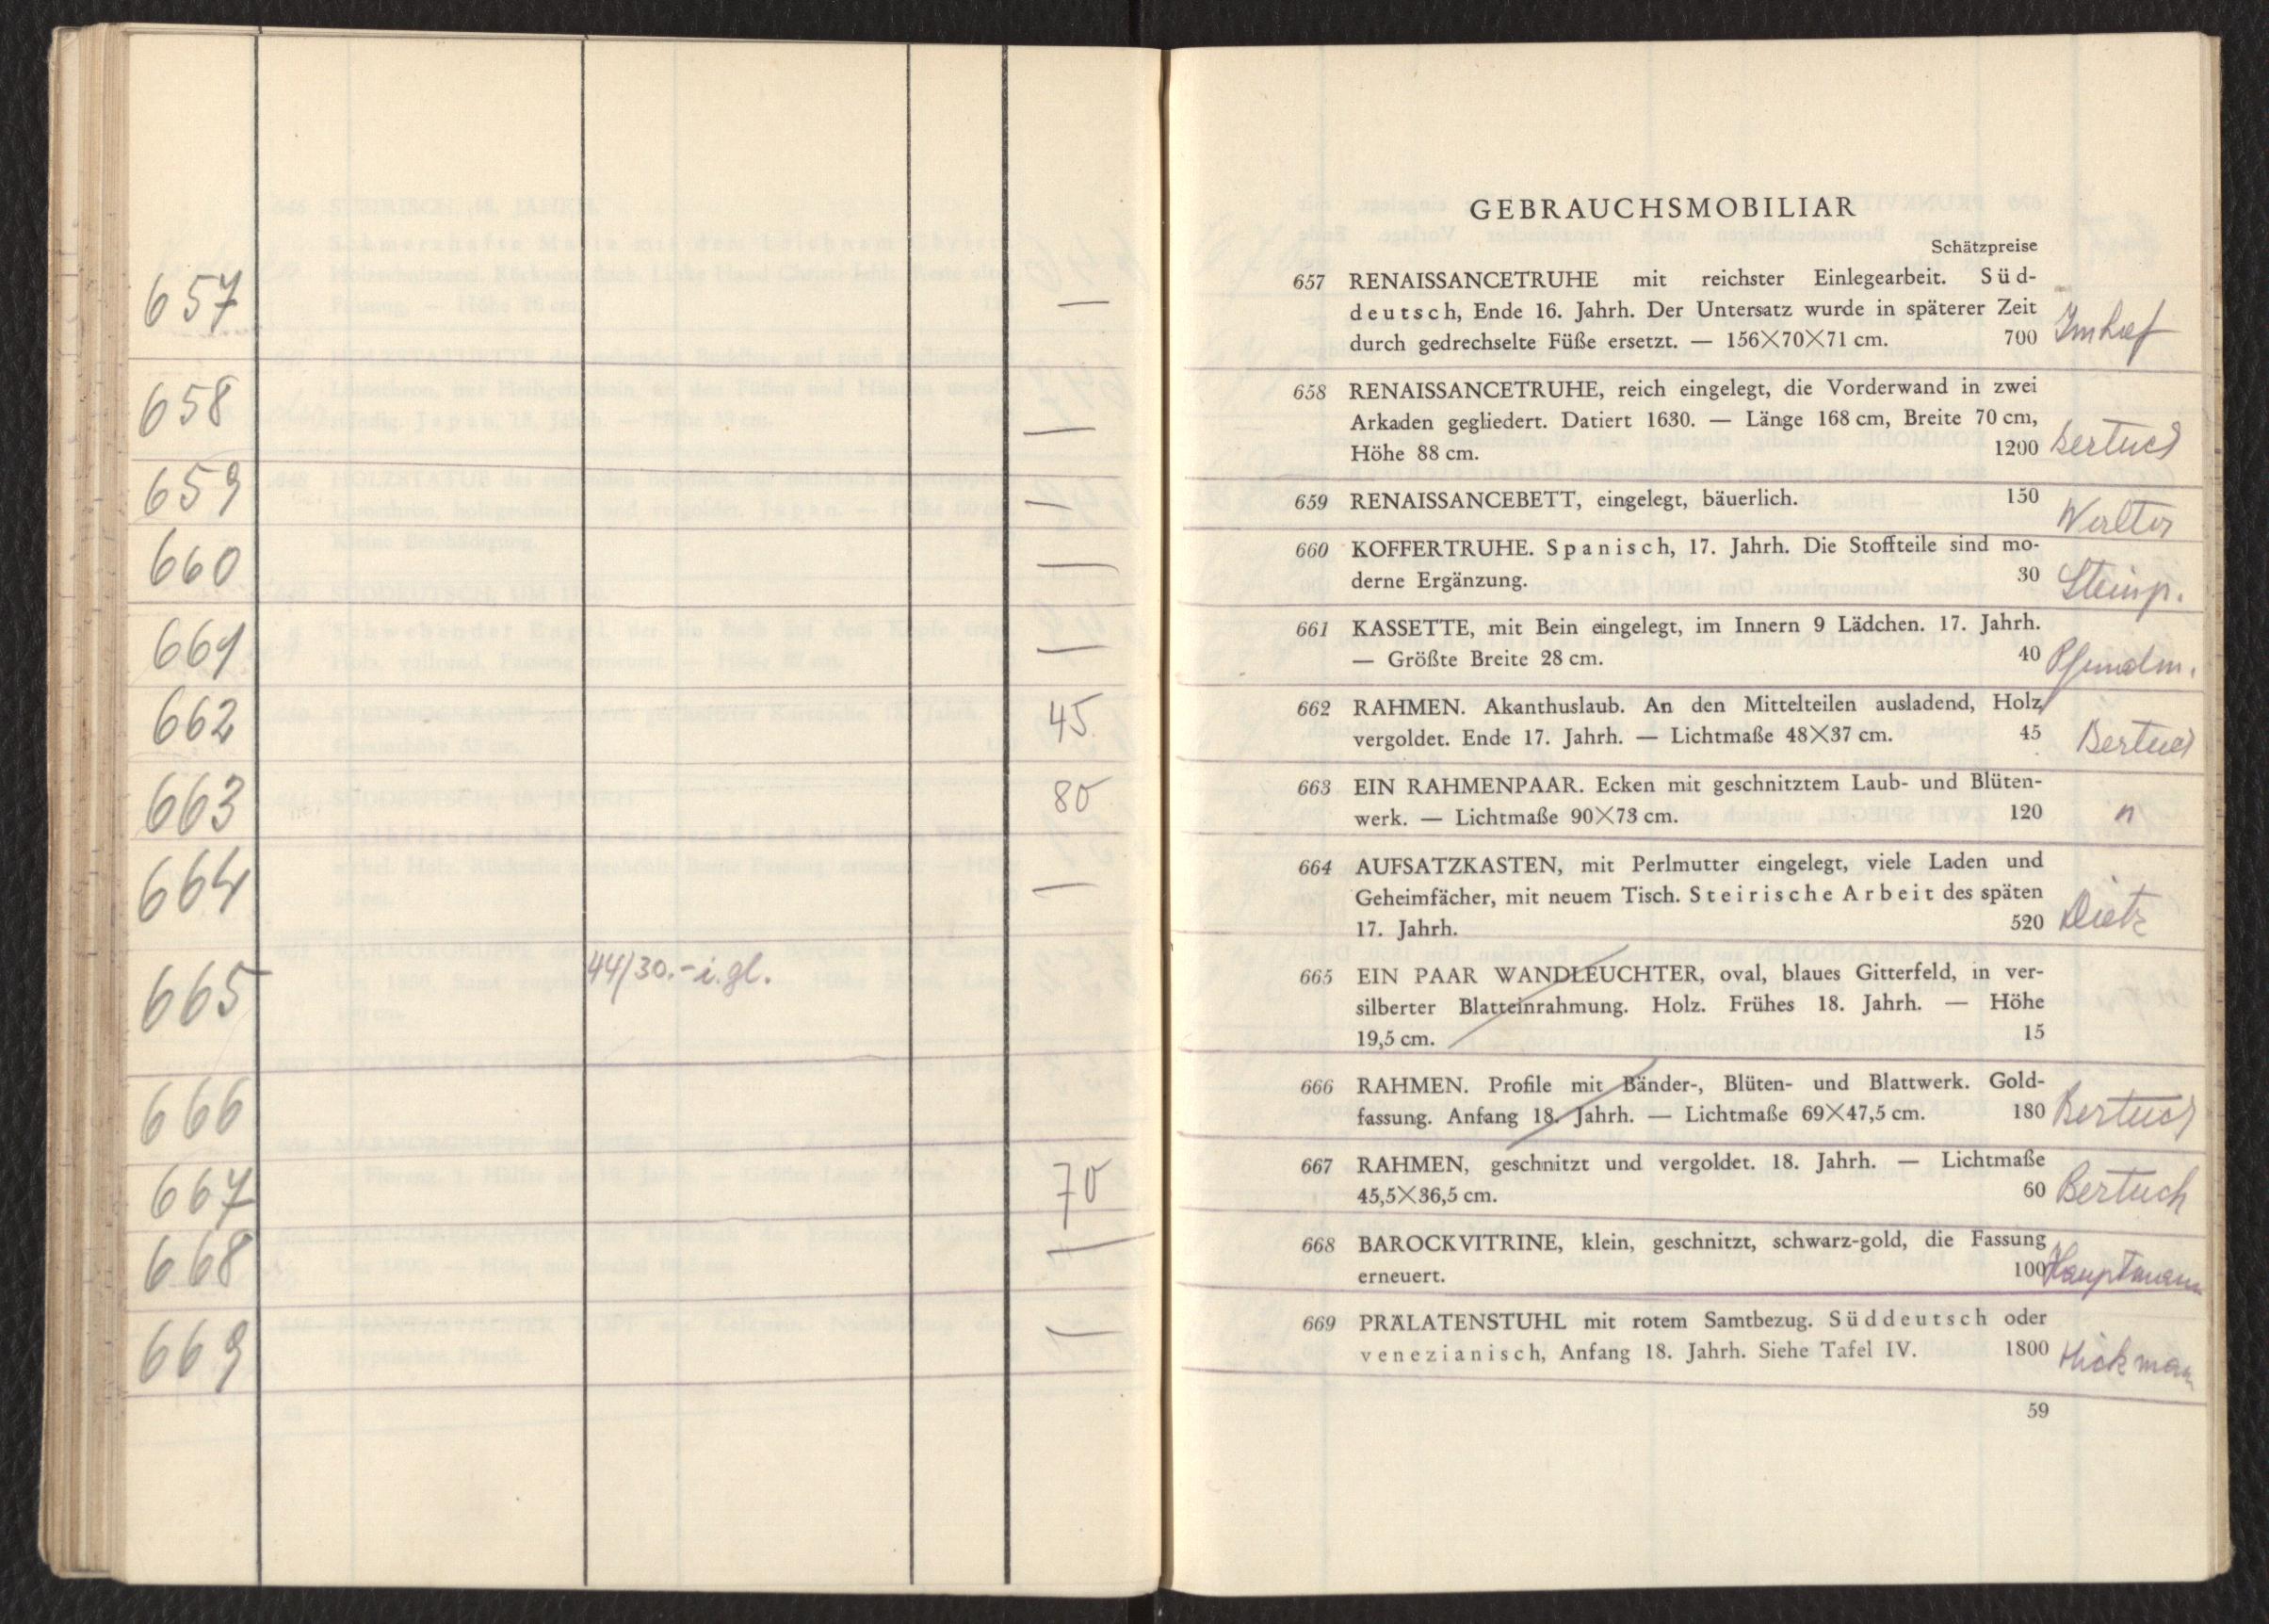 657 —
658 —
659 —
660 —
661 —
662 45
663 80
664 —
665 44/30.- i. gl.
666
667 70
668 —
669 —
GEBRAUCHSMOBILIAR
Schätzpreise
657 RENAISSANCETRUHE mit reichster Einlegearbeit. Süd-
deutsch, Ende 16. Jahrh. Der Untersatz wurde in späterer Zeit
durch gedrechselte Füße ersetzt. — 156×70×71 cm. 700 Imhof
658 RENAISSANCETRUHE, reich eingelegt, die Vorderwand in zwei
Arkaden gegliedert. Datiert 1630. — Länge 168 cm, Breite 70 cm,
Höhe 88 cm. 1200 Bertuch
659 RENAISSANCEBETT, eingelegt, bäuerlich. 150 Walter
660 KOFFERTRUHE. Spanisch, 17. Jahrh. Die Stoffteile sind mo-
derne Ergänzung. 30 Steinp.
661 KASSETTE, mit Bein eingelegt, im Innern 9 Lädchen. 17. Jahrh.
— Größte Breite 28 cm. 40
662 RAHMEN. Akanthuslaub. An den Mittelteilen ausladend, Holz
vergoldet. Ende 17. Jahrh. — Lichtmaße 48×37 cm. 45 Bertuch
663 EIN RAHMENPAAR. Ecken mit geschnitztem Laub- und Blüten-
werk. — Lichtmaße 90×73 cm. 120 "
664 AUFSATZKASTEN, mit Perlmutter eingelegt, viele Laden und
Geheimfächer, mit neuem Tisch. Steirische Arbeit des späten
17. Jahrh. 520 Dietz
665 EIN PAAR WANDLEUCHTER, oval, blaues Gitterfeld, in ver-
silberter Blatteinrahmung. Holz. Frühes 18. Jahrh. — Höhe
19,5 cm. 15
666 RAHMEN. Profile mit Bänder-, Blüten- und Blattwerk. Gold-
fassung. Anfang 18. Jahrh. — Lichtmaße 69×47,5 cm. 180 Bertuch
667 RAHMEN, geschnitzt und vergoldet. 18. Jahrh. — Lichtmaße
45,5×36,5 cm. 60 Bertuch
668 BAROCKVITRINE, klein, geschnitzt, schwarz-gold, die Fassung
erneuert. 100 Hauptmann
669 PRÄLATENSTUHL mit rotem Samtbezug. Süddeutsch oder
venezianisch, Anfang 18. Jahrh. Siehe Tafel IV. 1800 Hickman
59